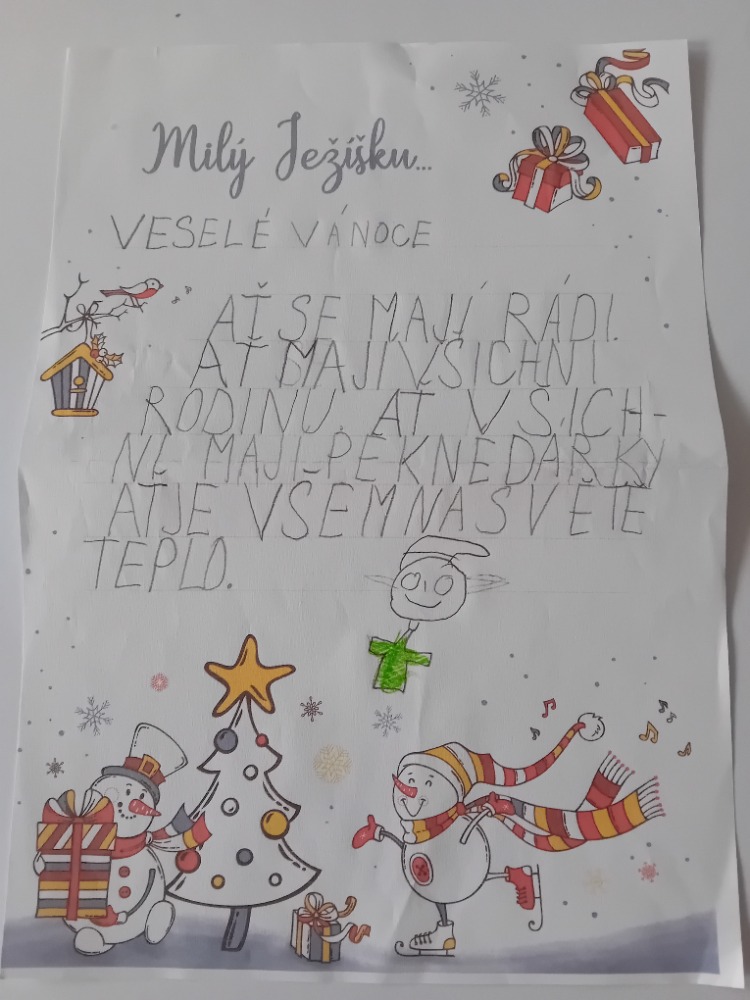 Milý Ježíšku...
VESELÉ VÁNOCE
AŤ SE MAJÍ RÁDI.
AŤ MAJI VŠICHNI
RODINU. AŤ VŠICH-
NI MAJI PĚKNE DÁRKY
AŤ JE VŠEM NA SVĚTĚ
TEPLO.